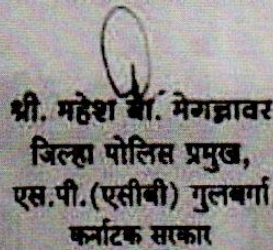 श्री. महेश बा. मेगन्नावर
जिल्हा पोलिस प्रमुख,
एस.पी.(एसीबी) गुलबर्गा
कर्नाटक सरकार